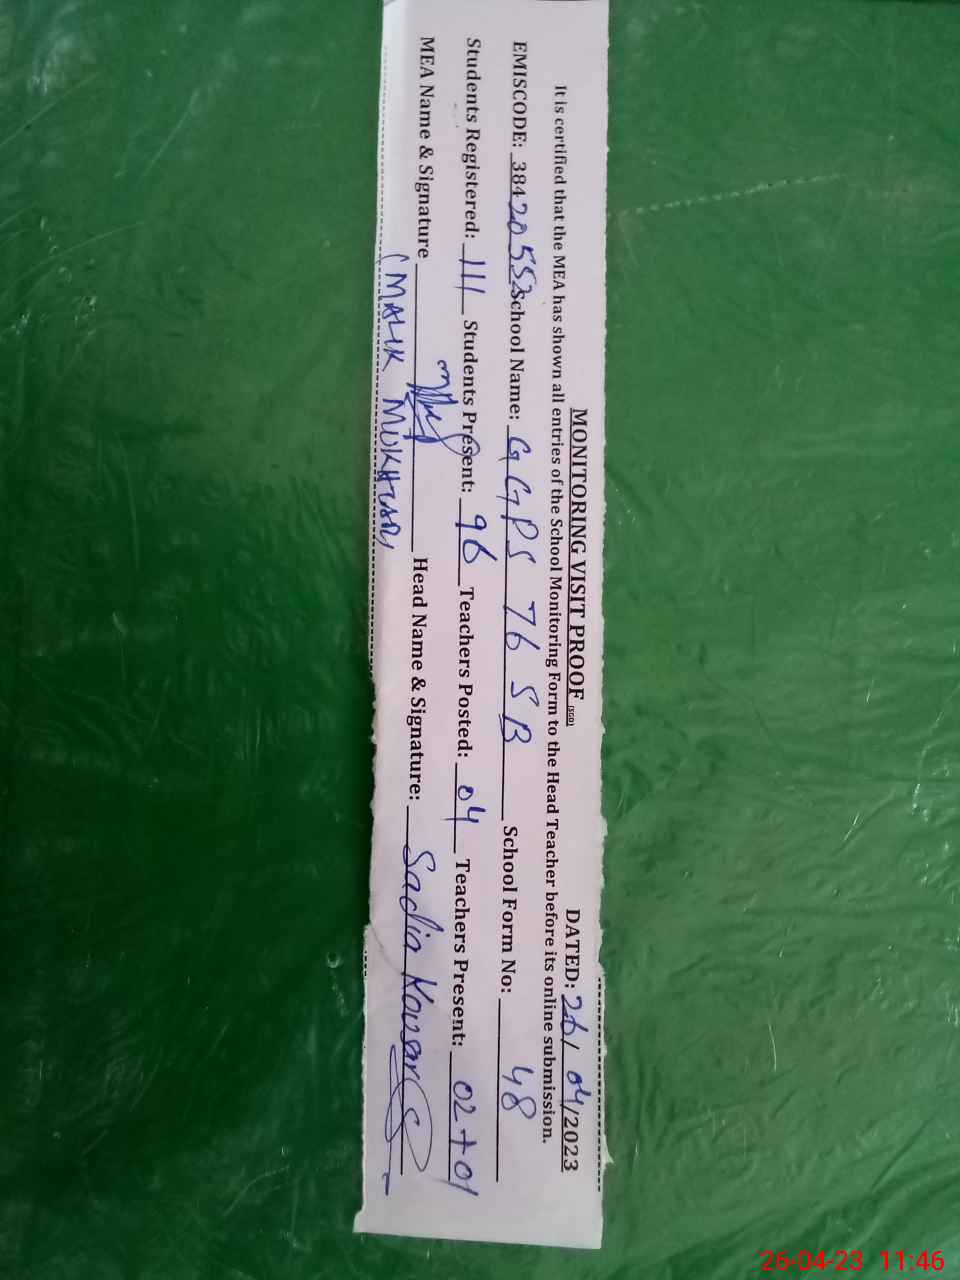 MONITORING VISIT PROOF (SGD) DATED: 26/04/2023
It is certified that the MEA has shown all entries of the School Monitoring Form to the Head Teacher before its online submission.
EMISCODE: 38420552 School Name: GGPS 76 SB School Form No: 48
Students Registered: 111 Students Present: 96 Teachers Posted: 04 Teachers Present: 02+01
MEA Name & Signature Head Name & Signature: Sadia Kousar
(MALIK MUKHTAR)
26-04-23 11:46